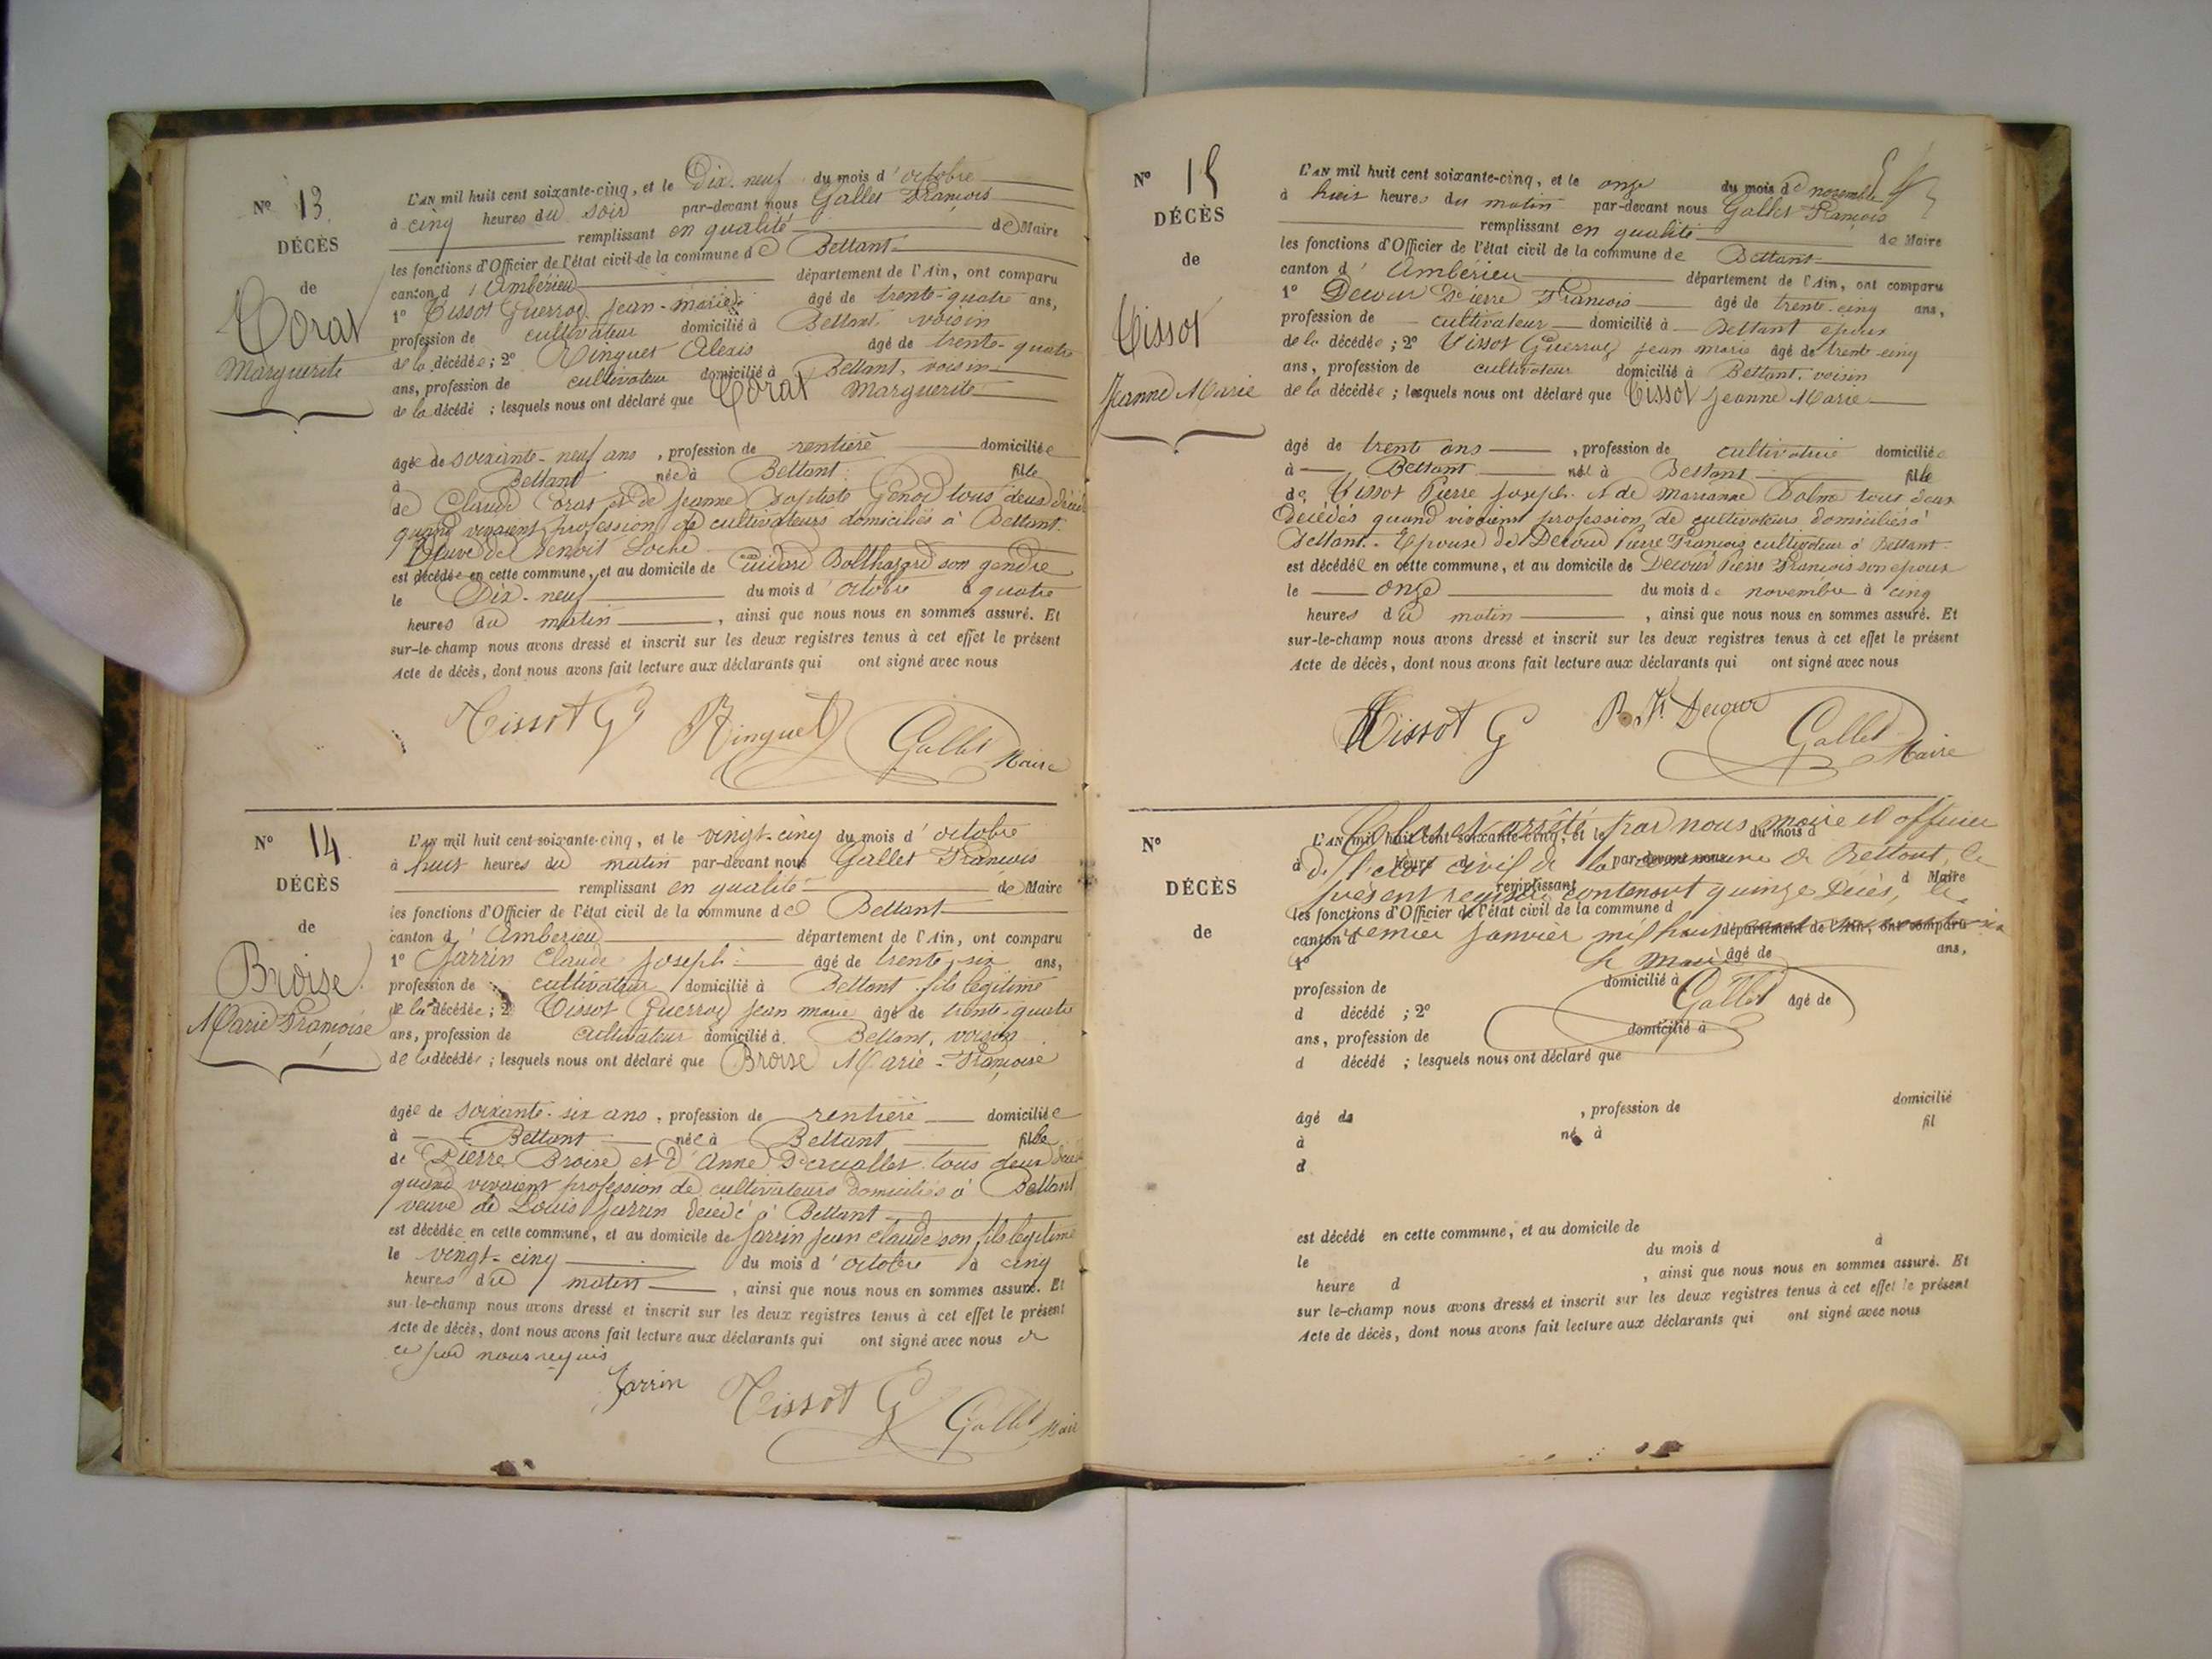 N° 13.
DÉCÈS
de
Corat
Marguerite
L'AN mil huit cent soixante-cinq, et le Dix-neuf du mois d'octobre
à cinq heures du soir par-devant nous Gallet François
remplissant en qualité de Maire
les fonctions d'Officier de l'état civil de la commune de Bettant
canton d'Ambérieu département de l'Ain, ont comparu
1° Tissot Guerraz Jean-marie âgé de trente-quatre ans,
profession de cultivateur domicilié à Bettant voisin
de la décédée ; 2° Ringuet Alexis âgé de trente-quatre
ans, profession de cultivateur domicilié à Bettant, voisin
de la décédé ; lesquels nous ont déclaré que Corat Marguerite
âgée de soixante-neuf ans, profession de rentière domiciliée
à Bettant née à Bettant fille
de Claude Corat et de Jeanne Baptiste Genod tous deux
quand vivaient profession de cultivateurs domiciliés à Bettant.
Veuve de Benoit Loche
est décédée en cette commune, et au domicile de Balthazard son gendre
le Dix-neuf du mois d'octobre à quatre
heures du matin, ainsi que nous nous en sommes assuré. Et
sur-le-champ nous avons dressé et inscrit sur les deux registres tenus à cet effet le présent
Acte de décès, dont nous avons fait lecture aux déclarants qui ont signé avec nous
Tissot G Ringuet Gallet Maire
N° 14.
DÉCÈS
de
Broise
Marie Françoise
L'AN mil huit cent soixante-cinq, et le vingt-cinq du mois d'octobre
à huit heures du matin par-devant nous Gallet François
remplissant en qualité de Maire
les fonctions d'Officier de l'état civil de la commune de Bettant
canton d'Ambérieu département de l'Ain, ont comparu
1° Jarrin Claude Joseph âgé de trente-six ans,
profession de cultivateur domicilié à Bettant fils légitime
de la décédée ; 2° Tissot Guerraz Jean marie âgé de trente-quatre
ans, profession de cultivateur domicilié à Bettant, voisin
de la décédée ; lesquels nous ont déclaré que Broise Marie-Françoise
âgée de soixante-six ans, profession de rentière domiciliée
à Bettant née à Bettant fille
de Pierre Broise et d'Anne tous deux
quand vivaient profession de cultivateurs domiciliés à Bettant
veuve de Louis Jarrin décédé à Bettant
est décédée en cette commune, et au domicile de Jarrin Jean claude son fils légitime
le vingt-cinq du mois d'octobre à cinq
heures du matin, ainsi que nous nous en sommes assuré. Et
sur-le-champ nous avons dressé et inscrit sur les deux registres tenus à cet effet le présent
Acte de décès, dont nous avons fait lecture aux déclarants qui ont signé avec nous de
ce par nous requis
Jarrin Tissot G Gallet Maire
N° 15
DÉCÈS
de
Tissot
Jeanne Marie
L'AN mil huit cent soixante-cinq, et le onze du mois de novembre
à huit heures du matin par-devant nous Gallet François
remplissant en qualité de Maire
les fonctions d'Officier de l'état civil de la commune de Bettant
canton d'Ambérieu département de l'Ain, ont comparu
1° Decour Pierre François âgé de trente-cinq ans,
profession de cultivateur domicilié à Bettant époux
de la décédée ; 2° Tissot Guerraz Jean marie âgé de trente-cinq
ans, profession de cultivateur domicilié à Bettant, voisin
de la décédée ; lesquels nous ont déclaré que Tissot Jeanne Marie
âgé de trente ans, profession de cultivatrice domiciliée
à Bettant né à Bettant fille
de Tissot Pierre Joseph et de Marianne tous deux
décédés quand vivaient profession de cultivateurs domiciliés à
Bettant. Epouse de Decour Pierre François cultivateur à Bettant
est décédée en cette commune, et au domicile de Decour Pierre François son époux
le onze du mois de novembre à cinq
heures du matin, ainsi que nous nous en sommes assuré. Et
sur-le-champ nous avons dressé et inscrit sur les deux registres tenus à cet effet le présent
Acte de décès, dont nous avons fait lecture aux déclarants qui ont signé avec nous
Tissot G P. F. Decour Gallet Maire
N°
DÉCÈS
de
Clos et arrêté par nous maire et officier
L'AN mil huit cent soixante-cinq, et le du mois d
de l'état civil de la commune de Bettant, le
à heure d par-devant nous
présent registre contenant quinze Décès, le
remplissant d Maire
les fonctions d'Officier de l'état civil de la commune d
premier janvier mil huit cent soixante six
canton d département de l'Ain, ont comparu
le maire
1° âgé de ans,
profession de domicilié à
Gallet
d décédé ; 2° âgé de
ans, profession de domicilié à
d décédé ; lesquels nous ont déclaré que
âgé de , profession de domicilié
à né à fil
d
est décédé en cette commune, et au domicile de
le du mois d à
heure d , ainsi que nous nous en sommes assuré. Et
sur-le-champ nous avons dressé et inscrit sur les deux registres tenus à cet effet le présent
Acte de décès, dont nous avons fait lecture aux déclarants qui ont signé avec nous